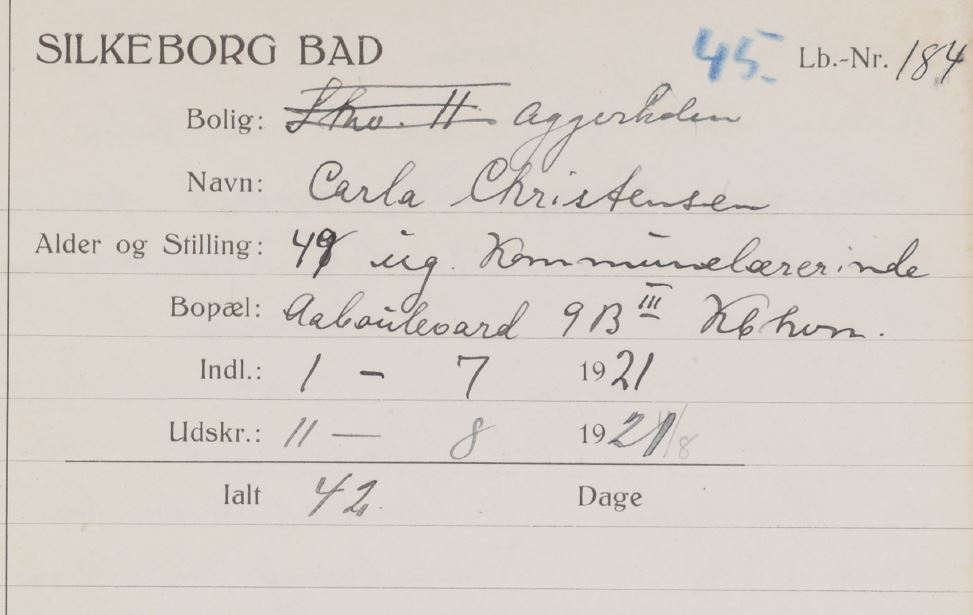 SILKEBORG BAD 45. Lb.-Nr. 184
Bolig: Aggerholm
Navn: Carla Christensen
Alder og Stilling: 49 ug. Kommunelærerinde
Bopæl: Aaboulevard 9 B III Kbhvn.
Indl.: 1 - 7 1921
Udskr.: 11 — 8 1921
Ialt 42. Dage